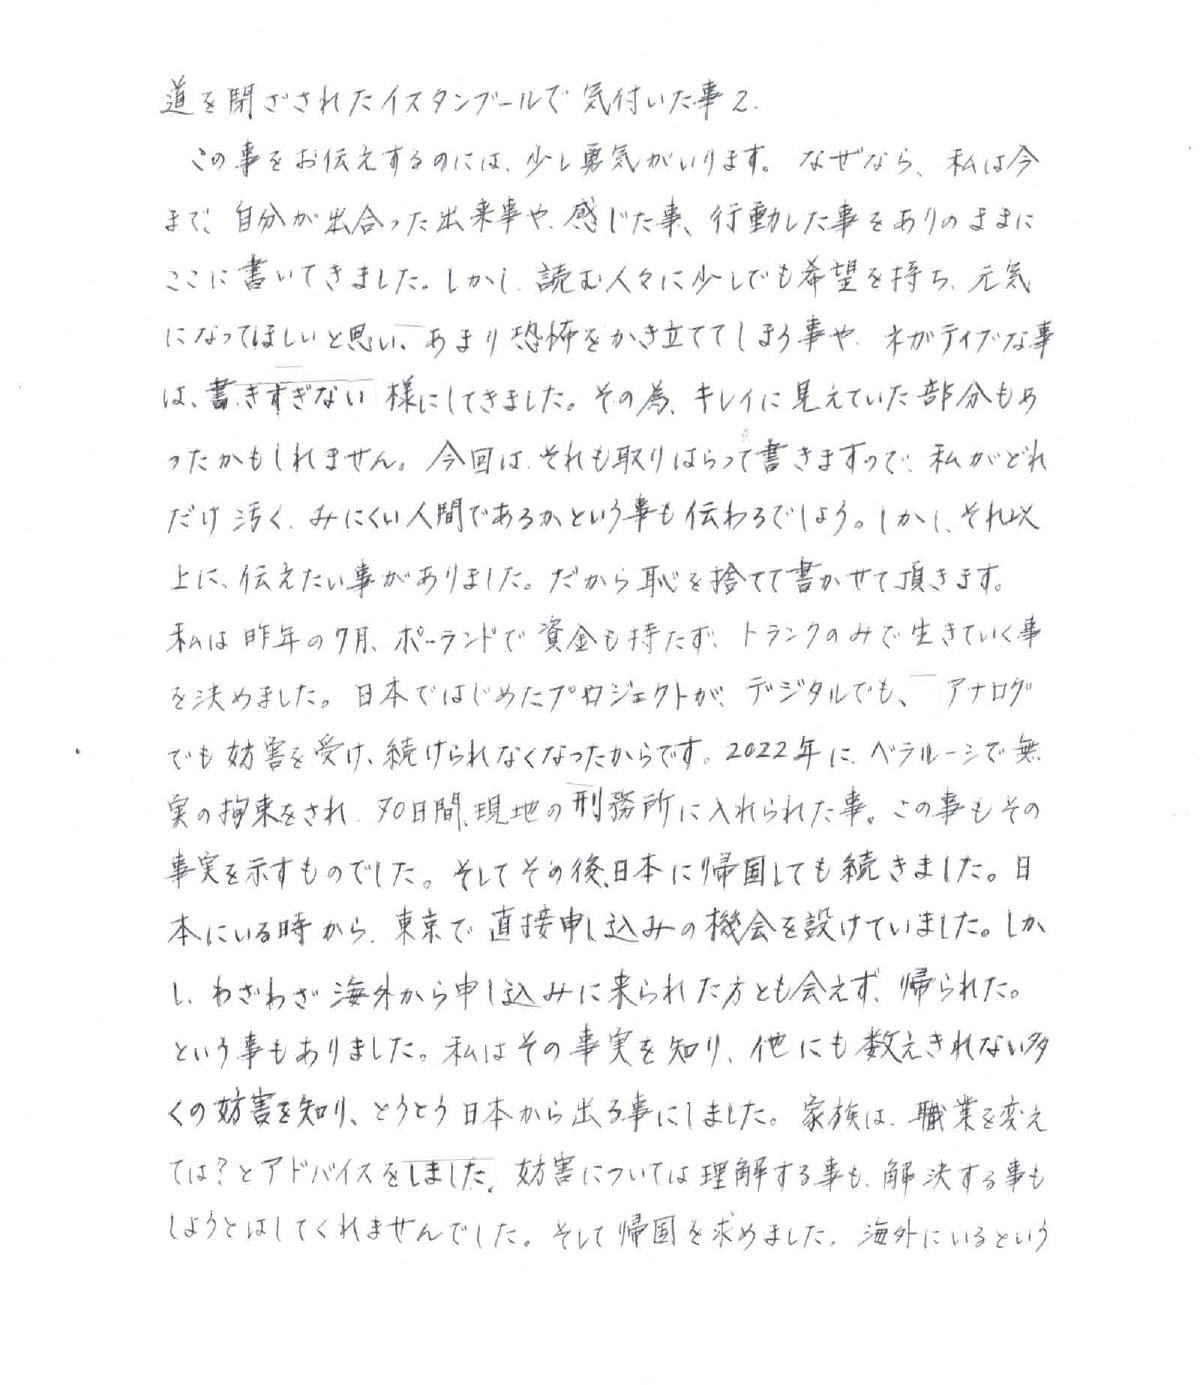 道を閉ざされたイスタンブールで気付いた事2.
この事をお伝えするのには、少し勇気がいります。なぜなら、私は今
まで、自分が出合った出来事や、感じた事、行動した事をありのままに
ここに書いてきました。しかし、読む人々に少しでも希望を持ち、元気
になってほしいと思い、あまり恐怖をかき立ててしまう事や、ネガティブな事
は、書きすぎない様にしてきました。その為、キレイに見えていた部分もあ
ったかもしれません。今回は、それも取りはらって書きますので、私がどれ
だけ汚く、みにくい人間であるかという事も伝わるでしょう。しかし、それ以
上に、伝えたい事がありました。だから恥を捨てて書かせて頂きます。
私は昨年の7月、ポーランドで資金も持たず、トランクのみで生きていく事
を決めました。日本ではじめたプロジェクトが、デジタルでも、アナログ
でも妨害を受け、続けられなくなったからです。2022年に、ベラルーシで無
実の拘束をされ、70日間、現地の刑務所に入れられた事。この事もその
事実を示すものでした。そしてその後、日本に帰国しても続きました。日
本にいる時から、東京で直接申し込みの機会を設けていました。しか
し、わざわざ海外から申し込みに来られた方とも会えず、帰られた。
という事もありました。私はその事実を知り、他にも数えきれない多
くの妨害を知り、とうとう日本から出る事にしました。家族は、職業を変え
ては?とアドバイスをしました。妨害については理解する事も、解決する事も
しようとはしてくれませんでした。そして帰国を求めました。海外にいるという